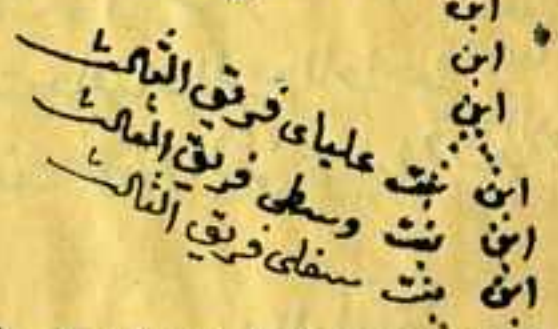 ابن
ابن
ابن
ابن بنت علیای فریق الثالث
ابن بنت وسطی فریق الثالث
ابن بنت سفلی فریق الثالث